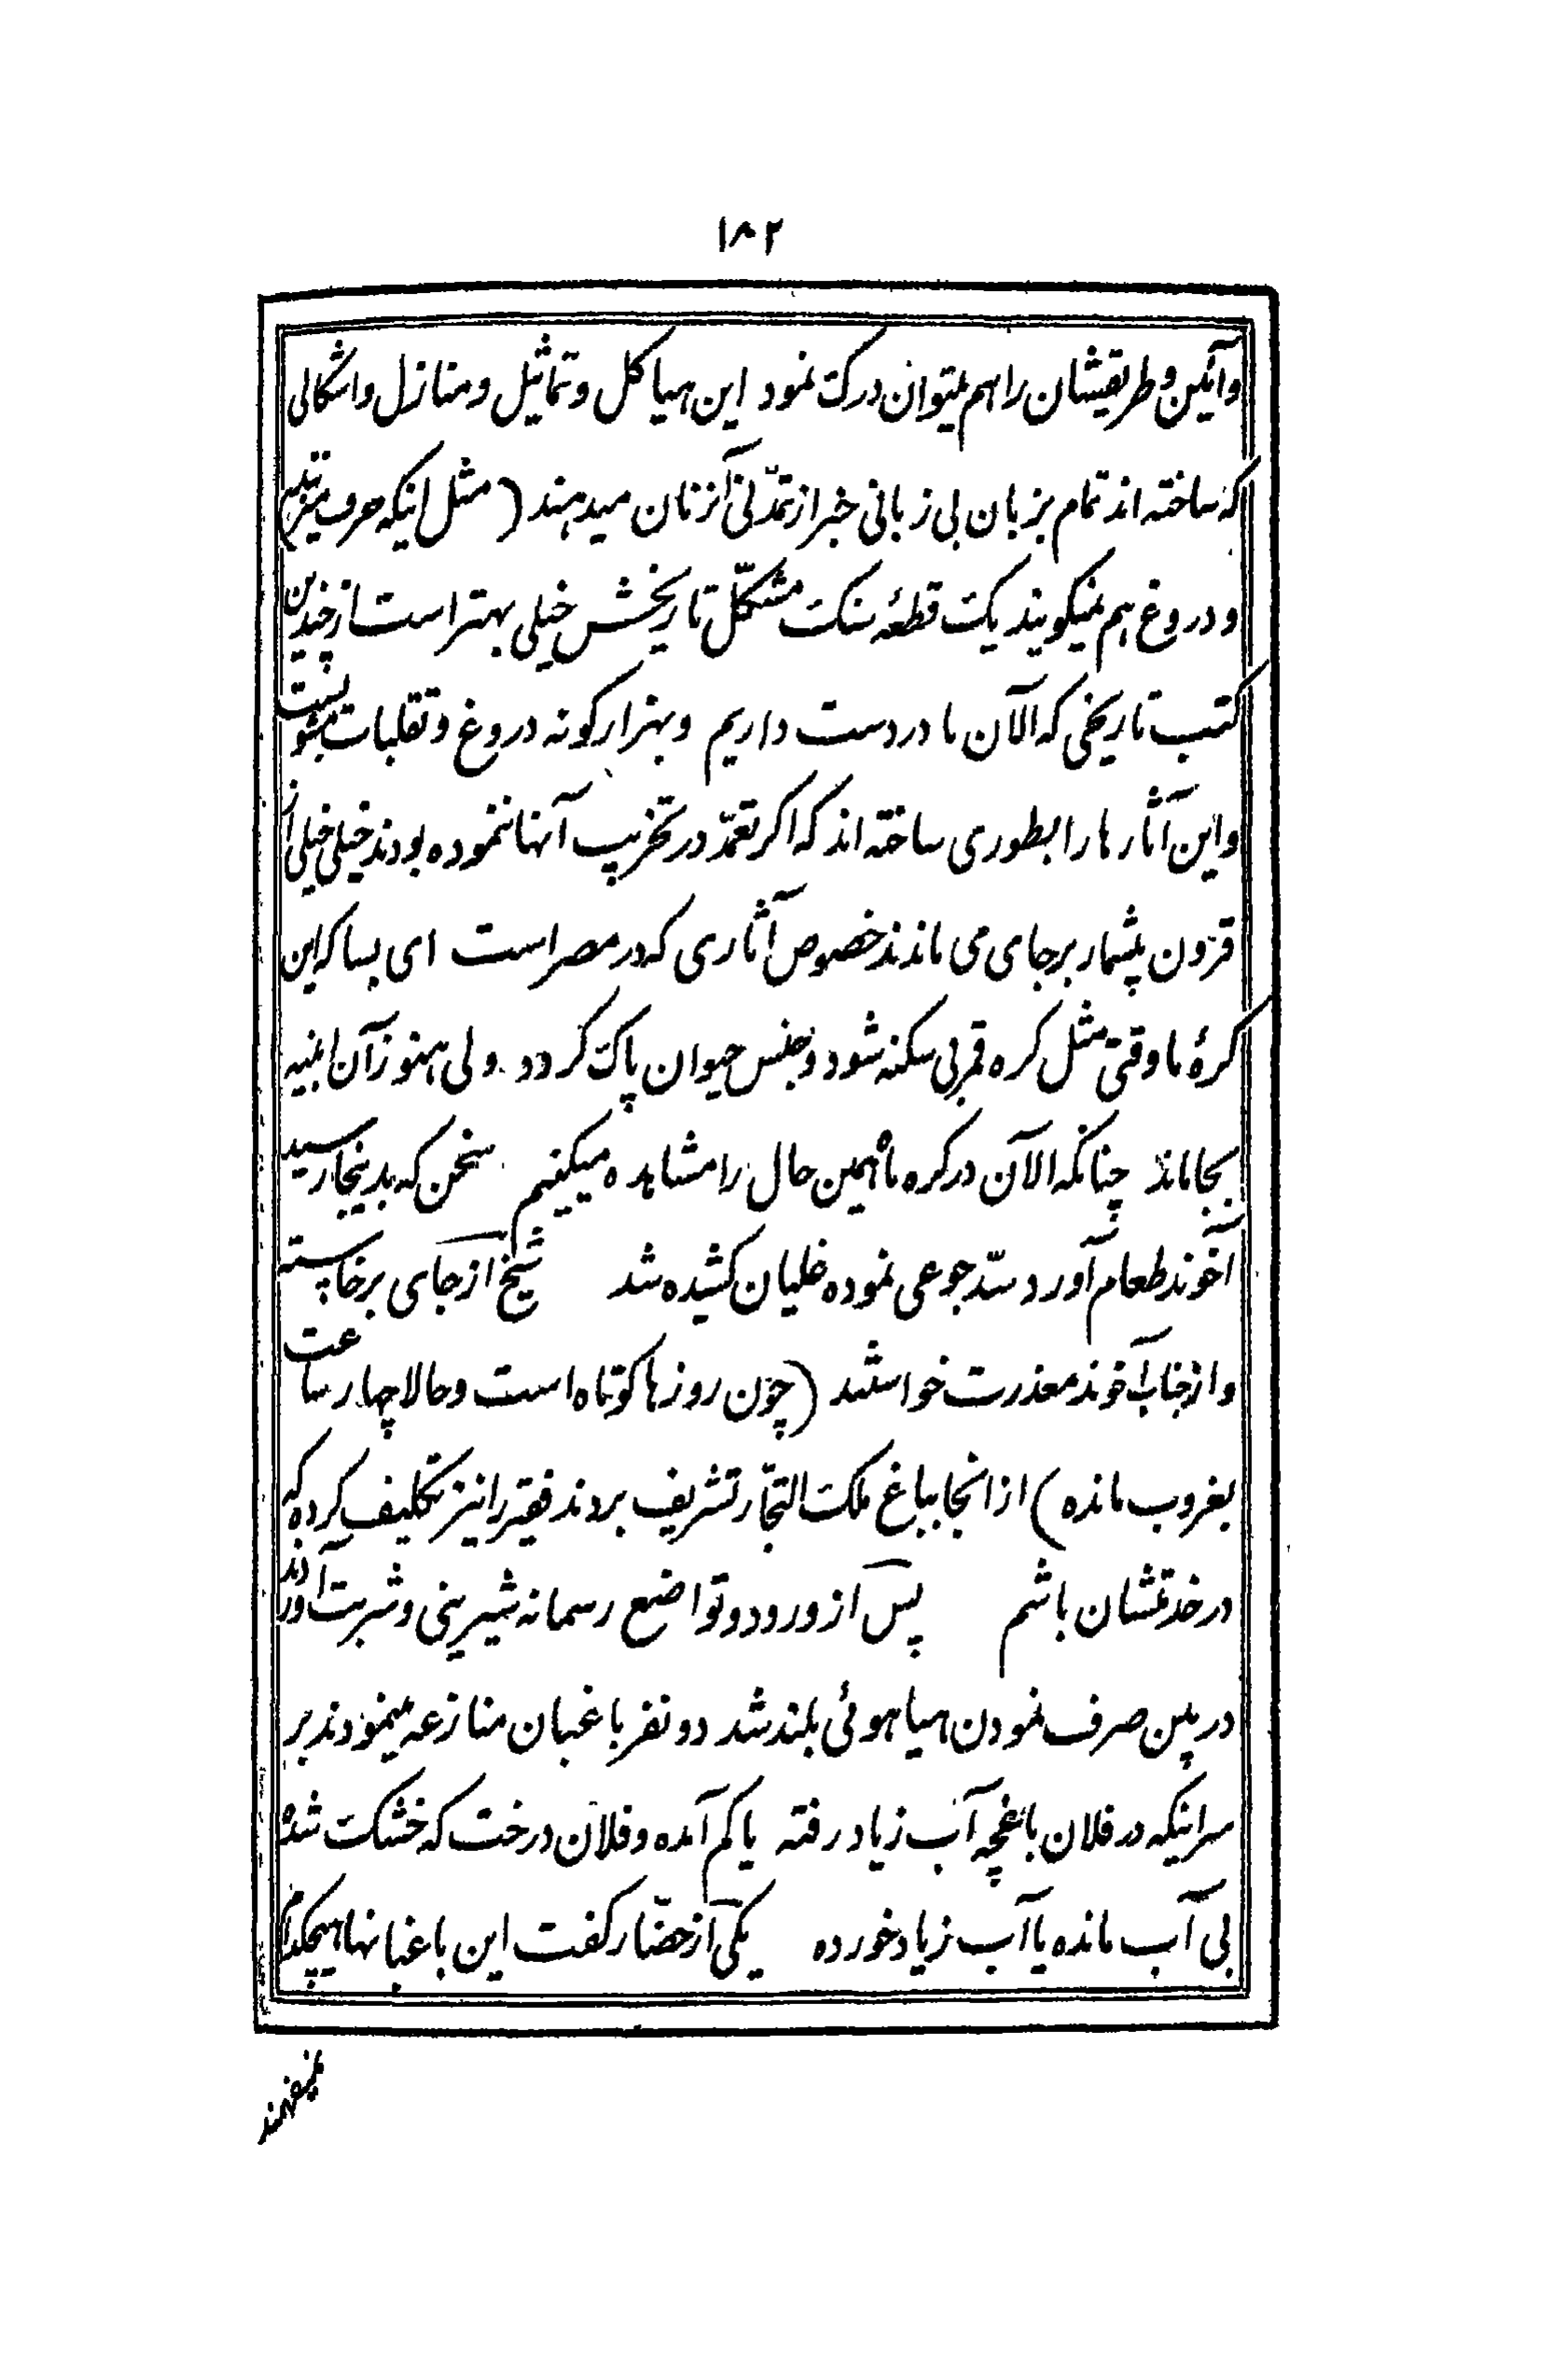 ١٨٢
وآئین و طریقیشان را هم میتوان درک نمود این هیاکل و تماثیل و منازل و اشکالی
که ساخته اند تمام بزبان بی زبانی خبر از تمدّنی آنزمان میدهند (مثل اینکه حرف میزنند)
و دروغ هم نمیکویند یک قطعهٔ سنک مشکّل تاریخش خیلی بهتر است از چندین
کتب تاریخی که الآن ما در دست داریم و بهزار کونه دروغ و تقلبات مشو
و این آثارها را بطوری ساخته اند که اکر تعمّد در تخریب آنها ننموده بودند خیلی خیلی از
قرون بیشمار برجای می ماندند خصوص آثاری که در مصر است ای بسا که این
کرهٔ ما وقتی مثل کره قمر بی سکنه شود و جنس حیوان پاک کردد ولی هنوز آن ابنیه
بجا ماند چنانکه الآن در کره ماه همین حال را مشاهده میکنیم سخن که بدینجا رسید
آخوند طعام آورد سدّ جوعی نموده غلیان کشیده شد شیخ از جای برخاسته
و از جناب آخوند معذرت خواستند (چون روزها کوتاه است و حالا چهار ساعت
بغروب مانده) از انجا بباغ ملک التجّار تشریف بردند فقیر را نیز تکلیف کرده که
در خدمتشان باشم پس از ورود و تواضع رسمانه شیرینی و شربت آوردند
در بین صرف نمودن هیاهوئی بلند شد دو نفر باغبان منازعه مینمودند بر
سر اینکه در فلان باغچه آب زیاد رفته یا کم آمده و فلان درخت که خشک شده
بی آب مانده یا آب زیاد خورده یکی از حضّار کفت این باغبانها هیچکدام
نمیفهمند